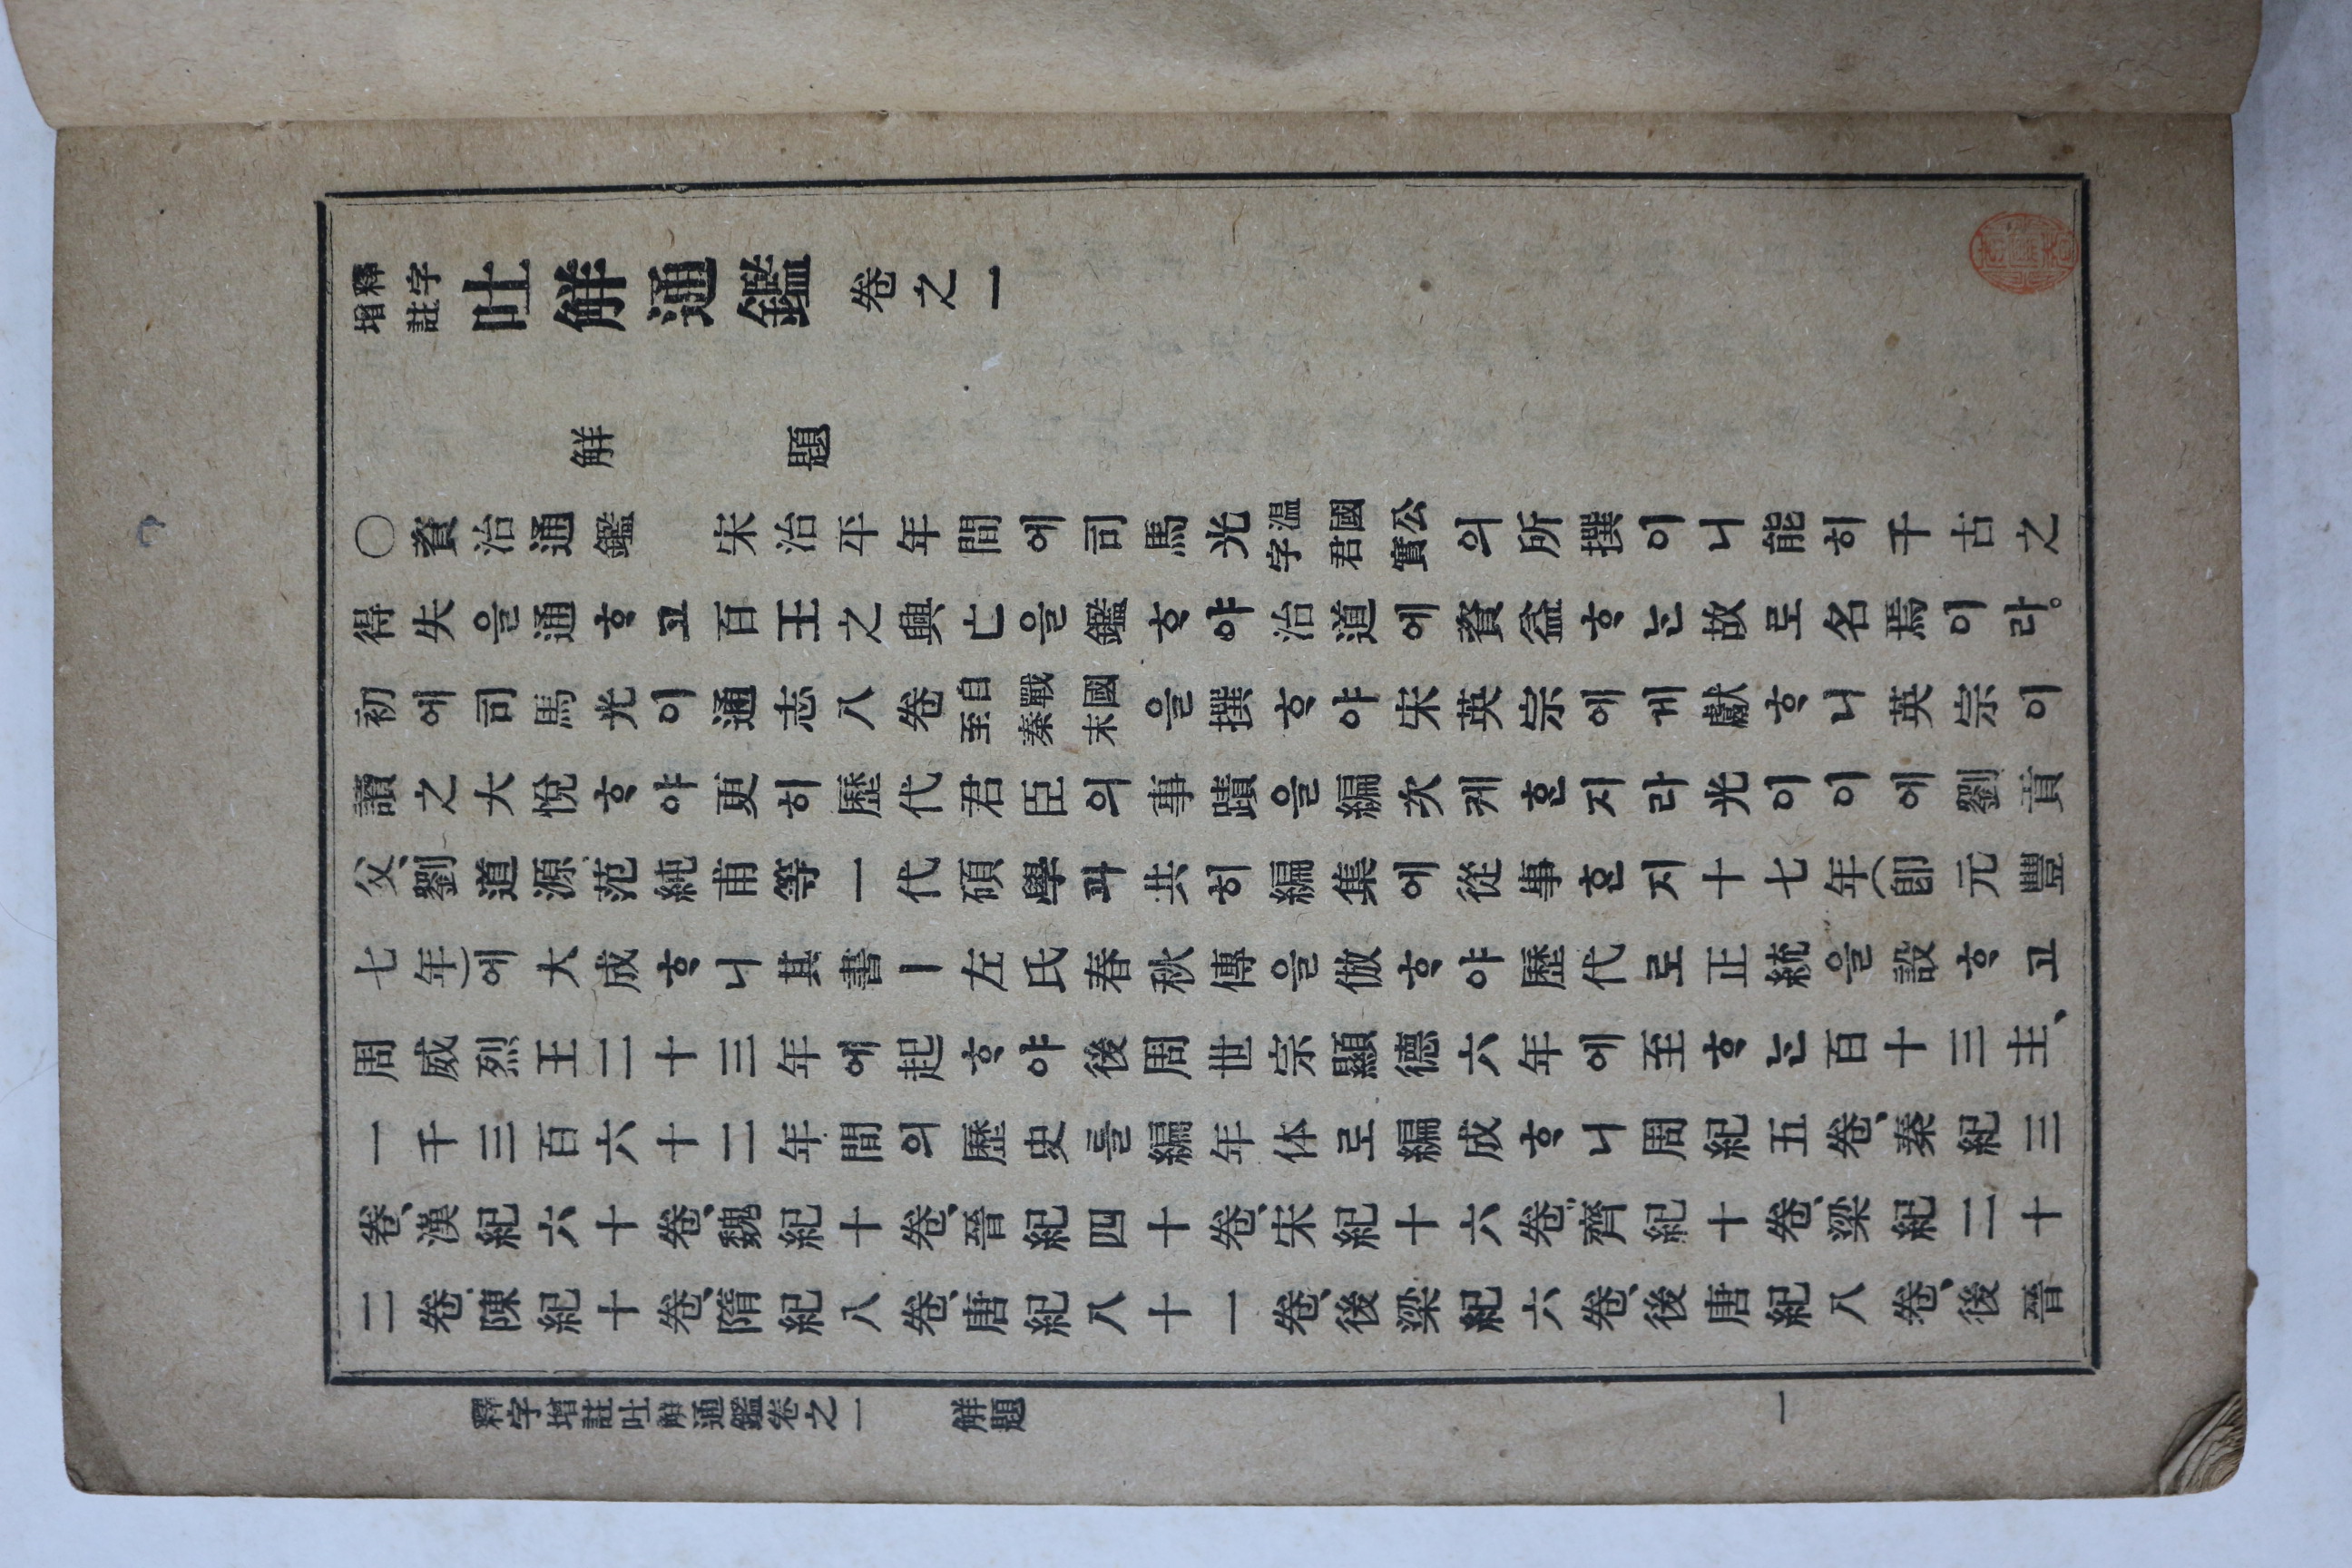 釋字增註 吐解通鑑 卷之一
解題
〇資治通鑑 宋治平年間에司馬光溫國公字君實의所撰이니能히千古之
得失을通ᄒᆞ고百王之興亡을鑑ᄒᆞ야治道에資益ᄒᆞᄂᆞᆫ故로名焉이라。
初에司馬光이通志八卷自戰國至秦末을撰ᄒᆞ야宋英宗에게獻ᄒᆞ니英宗이
讀之大悅ᄒᆞ야更히歷代君臣의事蹟을編次케ᄒᆞᆫ지라光이이에劉貢
父、劉道源范純甫等一代碩學과共히編集에從事ᄒᆞᆫ지十七年(卽元豐
七年)에大成ᄒᆞ니其書ㅣ左氏春秋傳을倣ᄒᆞ야歷代로正統을設ᄒᆞ고
周威烈王二十三年에起ᄒᆞ야後周世宗顯德六年에至ᄒᆞᄂᆞᆫ百十三主、
一千三百六十二年間의歷史를編年体로編成ᄒᆞ니周紀五卷、秦紀三
卷、漢紀六十卷、魏紀十卷、晉紀四十卷、宋紀十六卷、齊紀十卷、梁紀二十
二卷、陳紀十卷、隋紀八卷、唐紀八十一卷、後梁紀六卷、後唐紀八卷、後晉
釋字增註吐解通鑑卷之一 解題 一